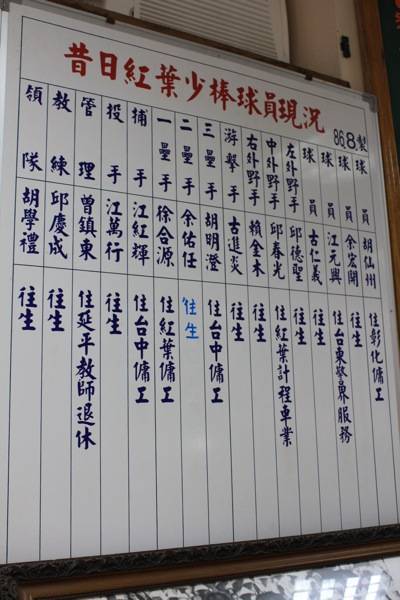 昔日紅葉少棒球員現況
86.8.製
領隊 胡學禮 往生
教練 邱慶成 往生
管理 曾鎮東 住延平教師退休
投手 江萬行 往生
捕手 江紅輝 住台中傭工
一壘手 徐合源 住紅葉傭工
二壘手 余佑任 往生
三壘手 胡明澄 住台中傭工
游擊手 古進炎 往生
右外野手 賴金木 往生
中外野手 邱春光 住紅葉計程車業
左外野手 邱德聖 往生
球員 古仁義 往生
球員 江元興 住台東警界服務
球員 余宏開 往生
球員 胡仙州 住彰化傭工